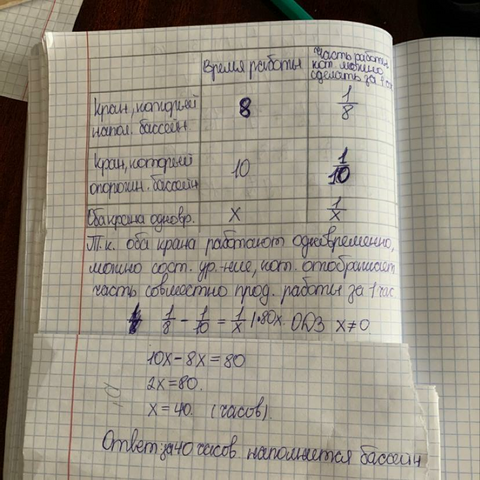 Время работы
Часть работы, кот. можно сделать за 1 ч.
Кран, который напол. бассейн
8
1/8
Кран, который опорожн. бассейн
10
1/10
Оба крана одновр.
x
1/x
Т.к. оба крана работают одновременно,
можно сост. ур-ние, кот. отображает
часть совместно прод. работы за 1 час
1/8 - 1/10 = 1/x |·80x. ОДЗ x≠0
10x-8x=80
2x=80.
x=40. (часов)
Ответ: за 40 часов наполняется бассейн